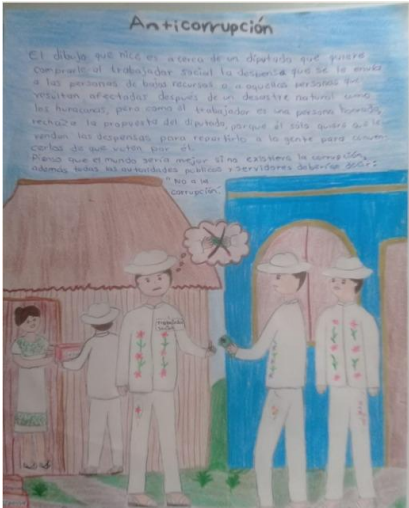 Anticorrupción
El dibujo que hice es acerca de un diputado que quiere
comprarle al trabajador social la despensa que se le envía
a las personas de bajos recursos o a aquellas personas que
resultan afectadas después de un desastre natural como
los huracanes, pero como el trabajador es una persona honrada,
rechaza la propuesta del diputado, porque él solo quiere que le
vendan las despensas para repartirlo a la gente para conven-
cerlos de que voten por él.
Pienso que el mundo sería mejor si no existiera la corrupción,
además todas las autoridades públicas y servidores deberían decir:
"No a la
corrupción".
Trabajador
social